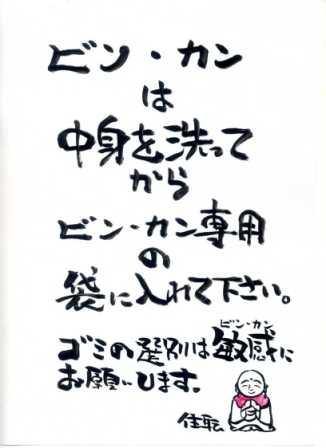 ビン・カン
は
中身を洗って
から
ビン・カン専用
の
袋に入れて下さい。
ビン・カン
ゴミの選別は敏感に
お願いします。
住職